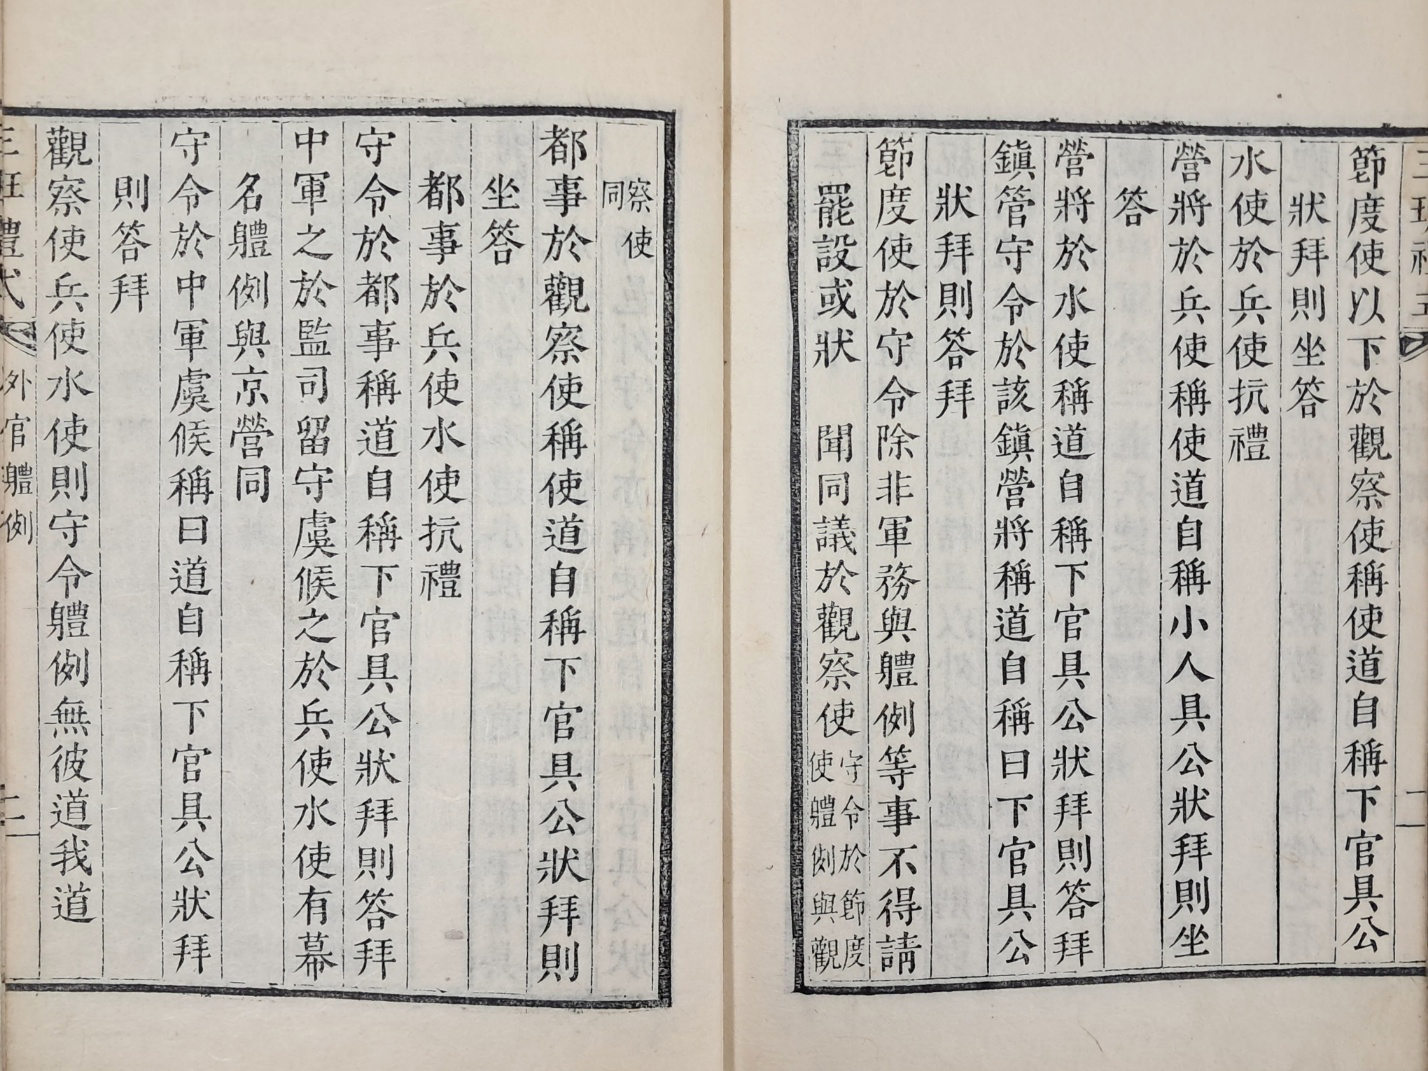 節度使以下於觀察使稱使道自稱下官具公
狀拜則坐答
水使於兵使抗禮
營將於兵使稱使道自稱小人具公狀拜則坐
答
營將於水使稱道自稱下官具公狀拜則答拜
鎮管守令於該鎮營將稱道自稱曰下官具公
狀拜則答拜
節度使於守令除非軍務與軆例等事不得請
罷設或狀 聞同議於觀察使守令於節度
使軆例與觀
察使
同
都事於觀察使稱使道自稱下官具公狀拜則
坐答
都事於兵使水使抗禮
守令於都事稱道自稱下官具公狀拜則答拜
中軍之於監司留守虞候之於兵使水使有幕
名軆例與京營同
守令於中軍虞候稱曰道自稱下官具公狀拜
則答拜
觀察使兵使水使則守令軆例無彼道我道
外官軆例
二